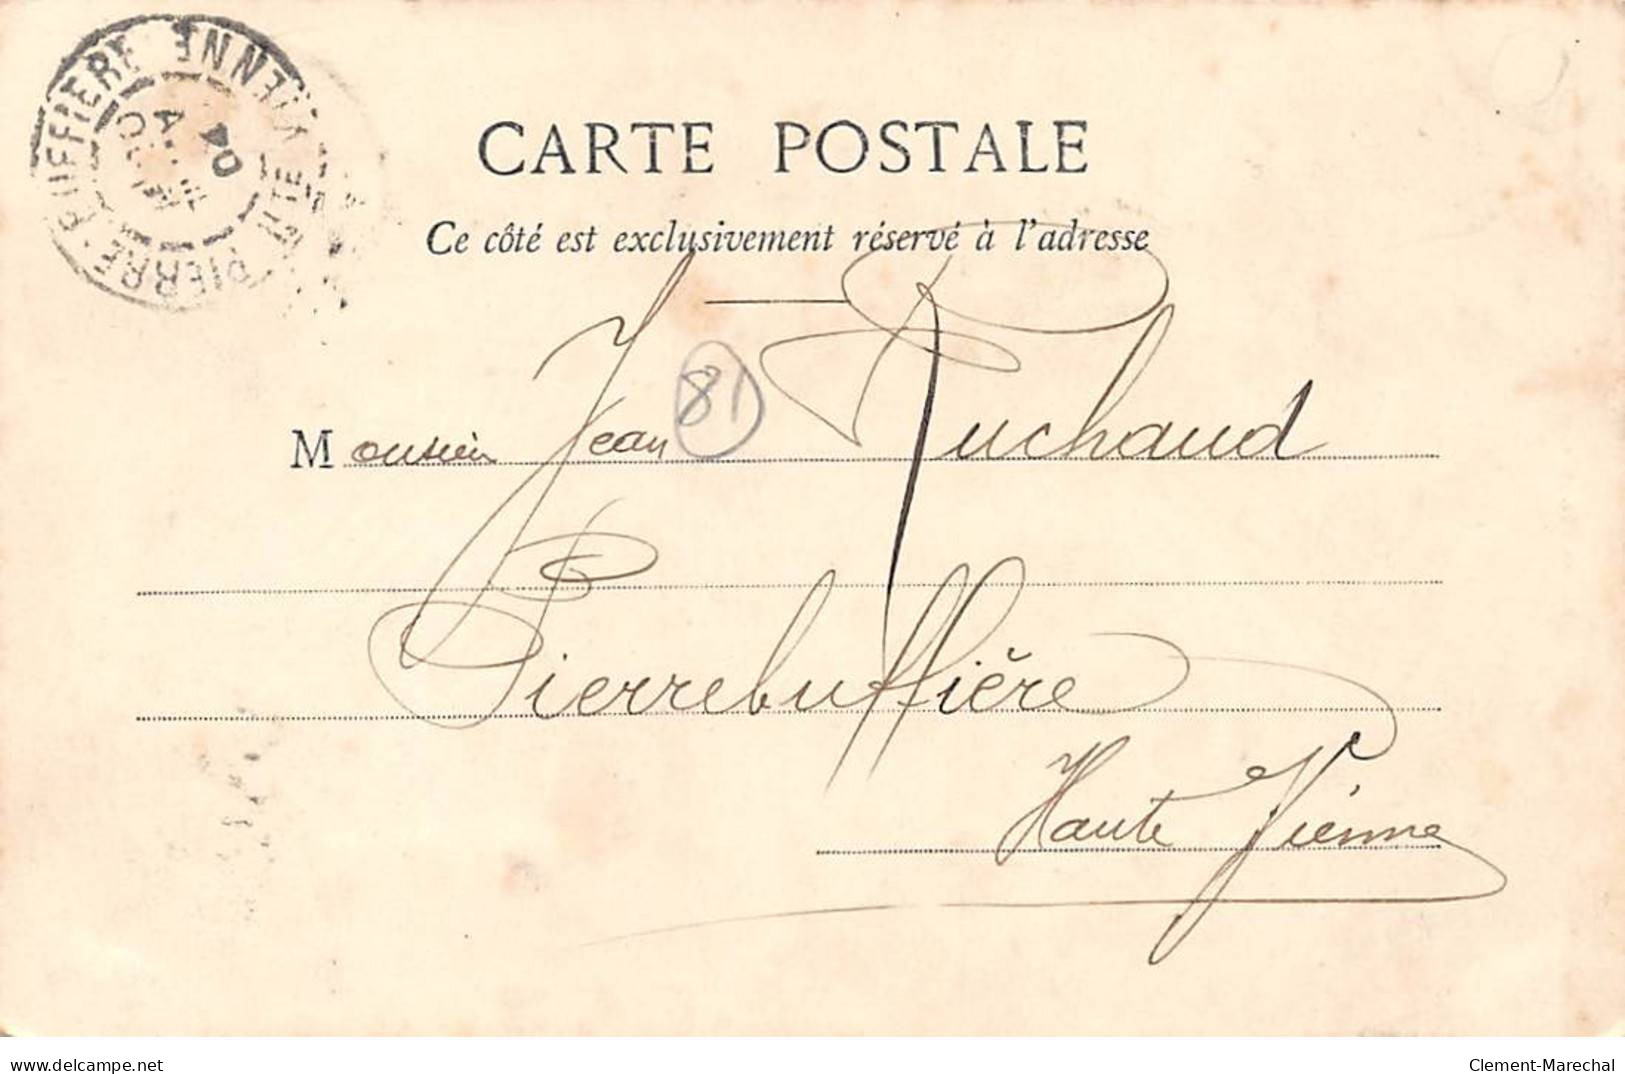 PIERRE-BUFFIERE HTE VIENNE
04
CARTE POSTALE
Ce côté est exclusivement réservé à l'adresse
81
Monsieur Jean Ruchaud
Pierrebuffière
Haute Vienne
www.delcampe.net
Clement-Marechal